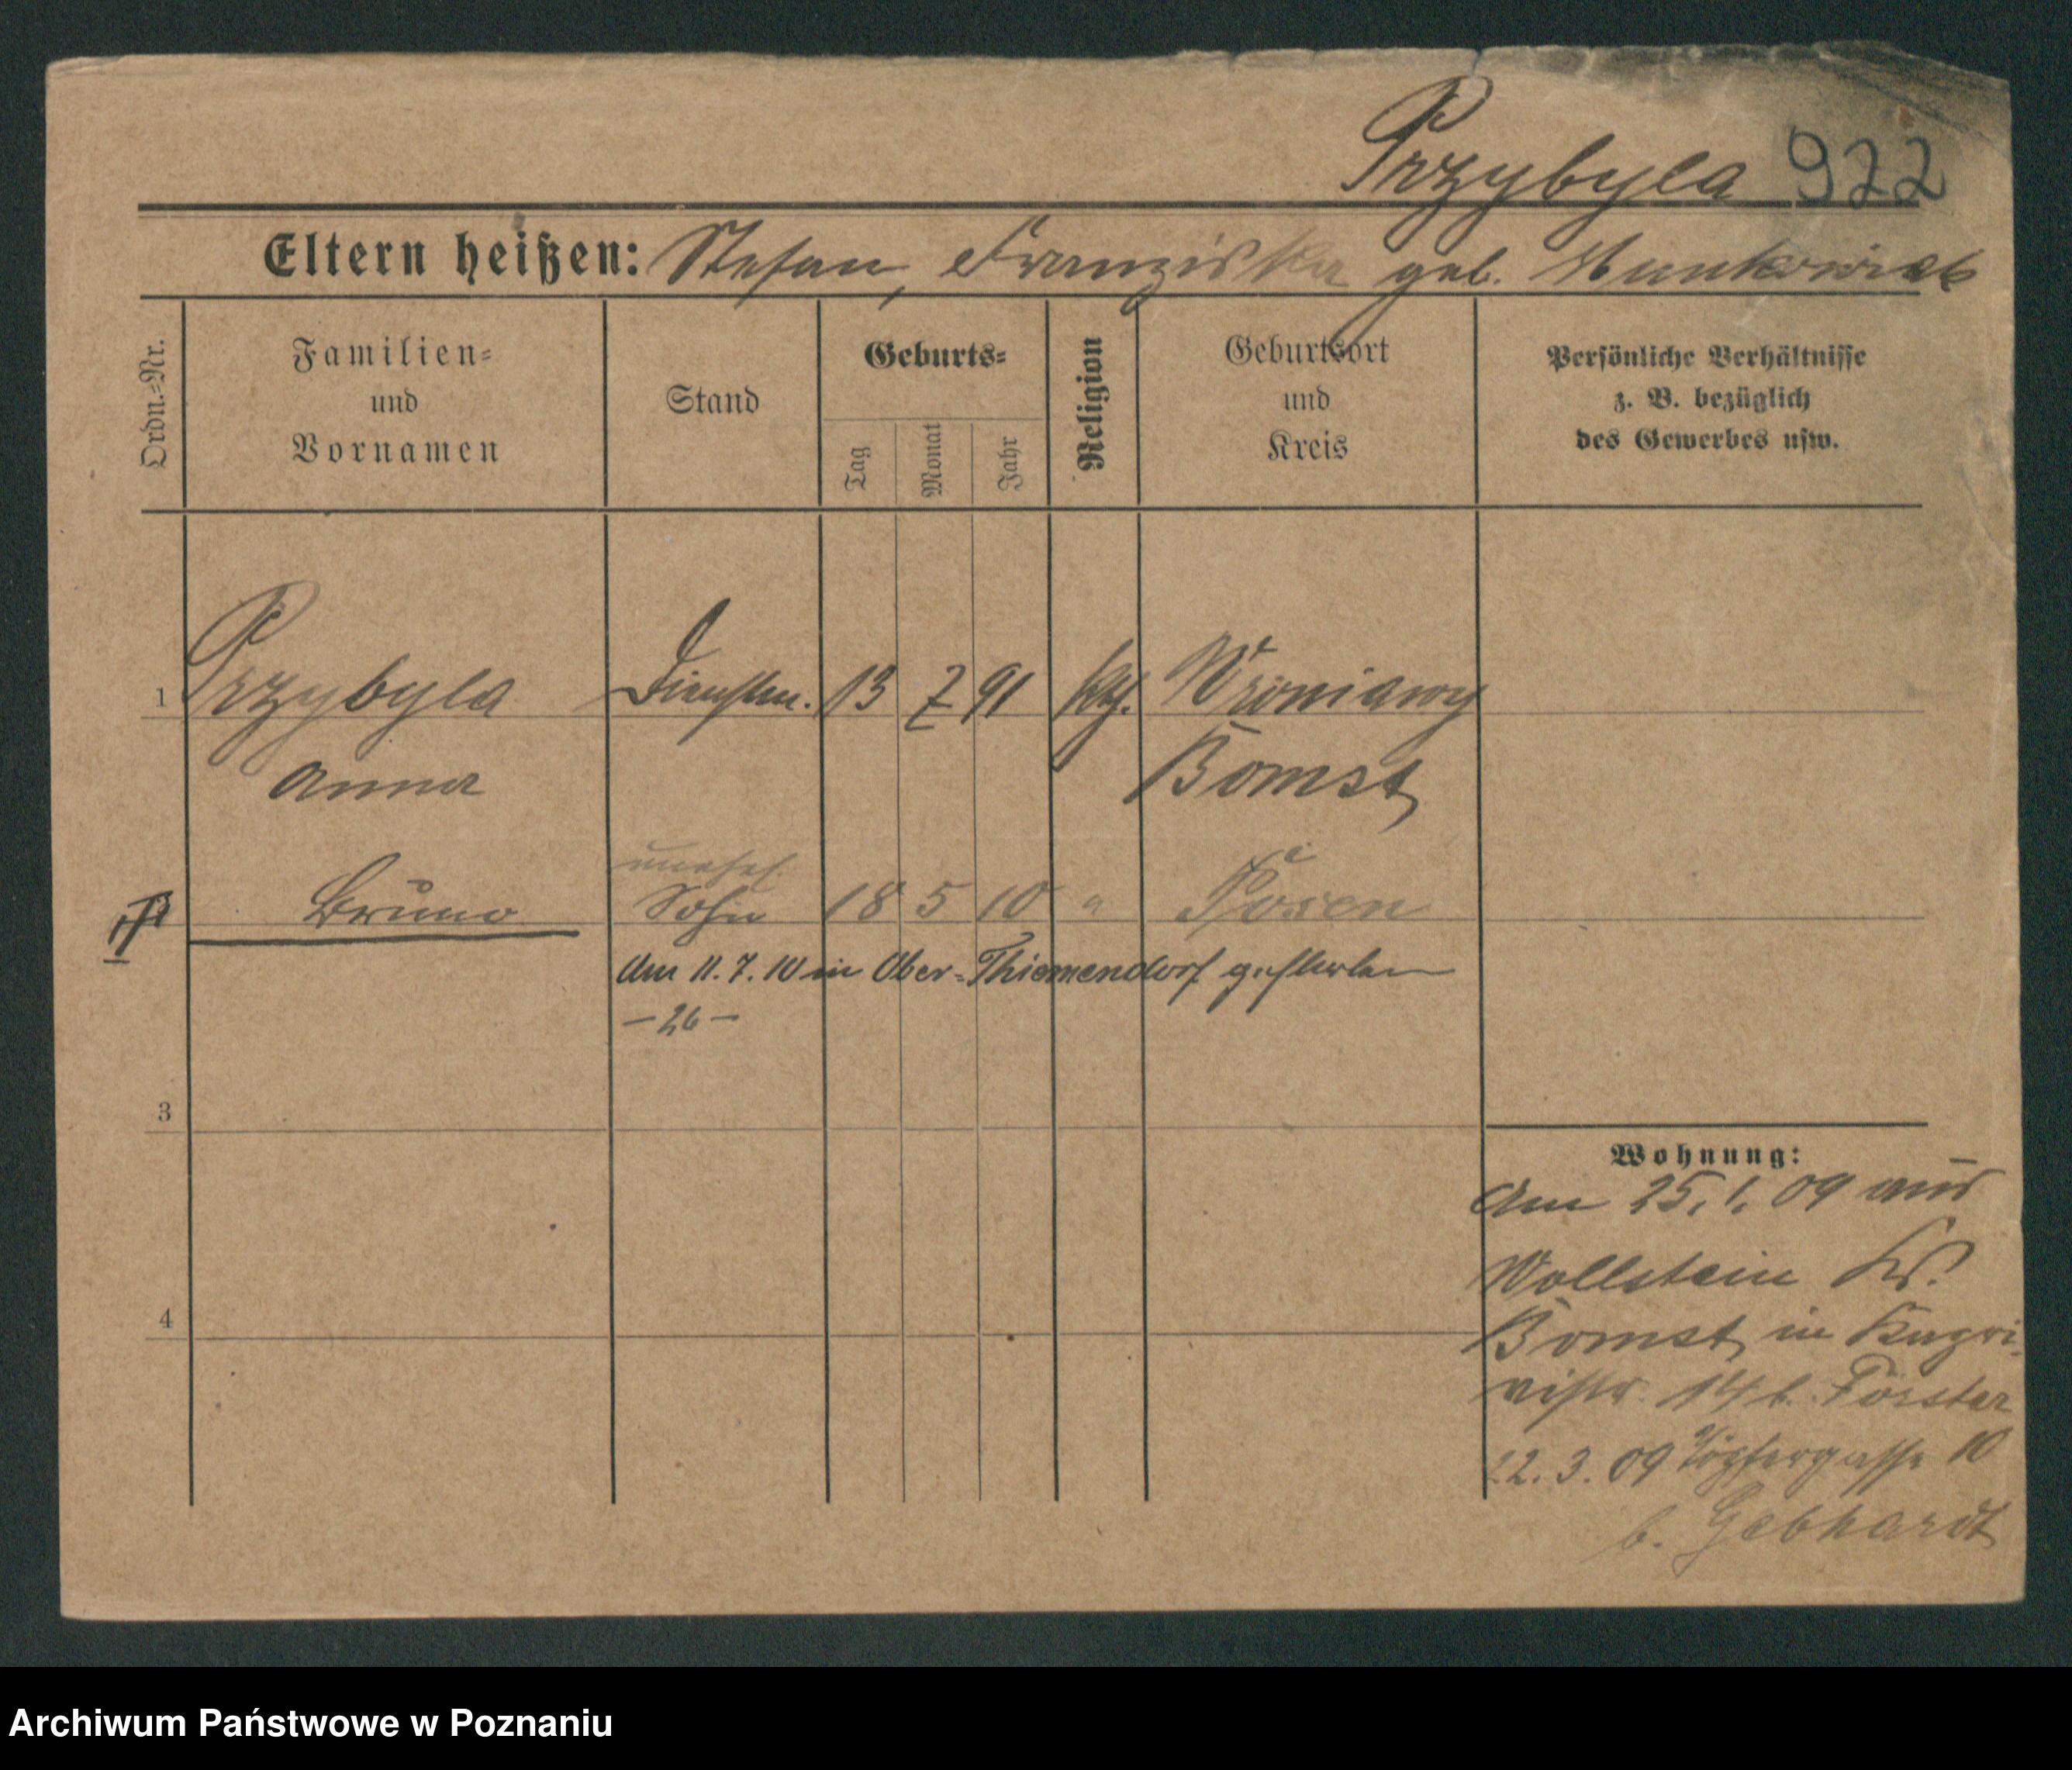 Przybyla 922
Eltern heißen: Stefan, Franziska geb.
Ordn.=Nr.
Familien=
und
Vornamen
Stand
Geburts=
Tag
Monat
Jahr
Religion
Geburtsort
und
Kreis
Persönliche Verhältnisse
z. B. bezüglich
des Gewerbes usw.
1 Przybyla Dienstm. 13 2 91 kth. Wroniawy
Anna Bomst
unehel.
Bruno Sohn 18 5 10 " Posen
Am 11. 7. 10 in Ober-Thiemendorf gestorben
- 26 -
3
4
Wohnung:
Am 25. 1. 09 aus
Wollstein Kr.
Bomst in
14 b. Förster
22. 3. 09 Töpfergasse 10
b. Gebhardt
Archiwum Państwowe w Poznaniu